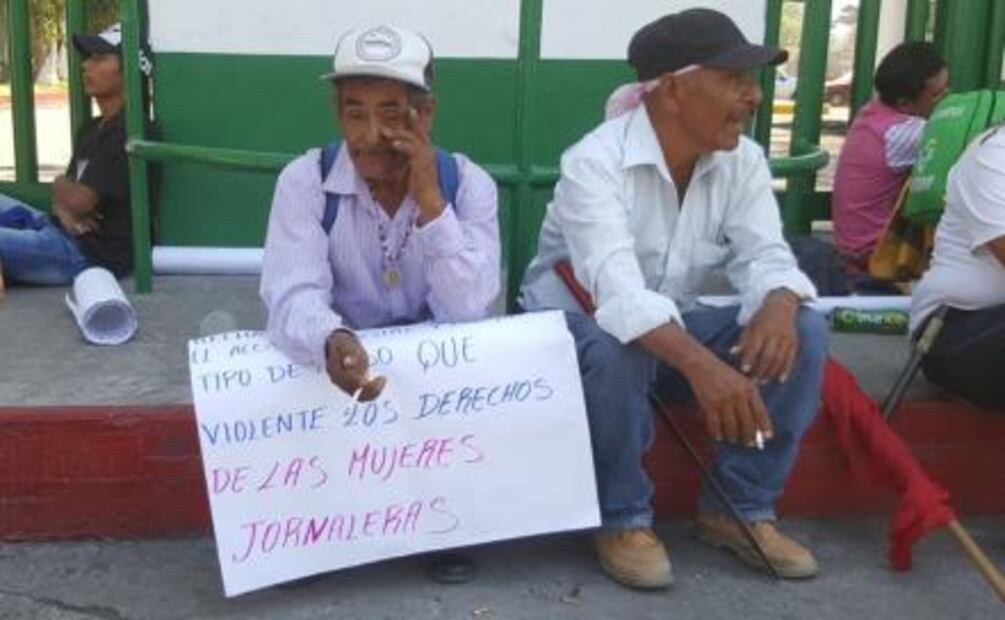 EL ACC
TIPO DE QUE
VIOLENTE LOS DERECHOS
DE LAS MUJERES
JORNALERAS